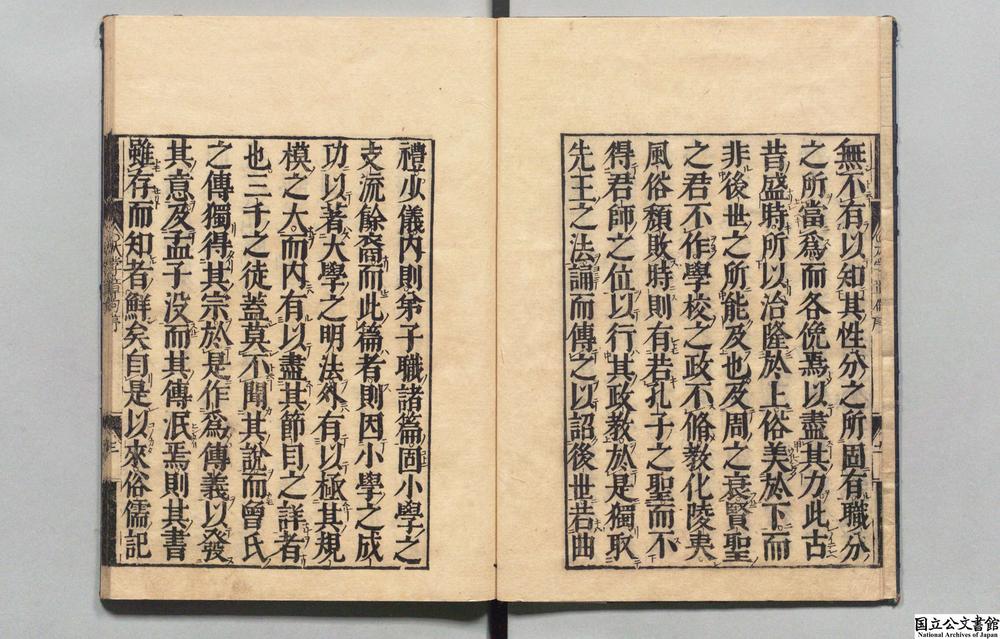 無不有以知其性分之所固有職分
之所當爲而各俛焉以盡其力此古
昔盛時所以治隆於上俗美於下而
非後世之所能及也及周之衰賢聖
之君不作學校之政不脩教化陵夷
風俗頽敗時則有若孔子之聖而不
得君師之位以行其政教於是獨取
先王之法誦而傳之以詔後世若曲
禮少儀内則弟子職諸篇固小學之
支流餘裔而此篇者則因小學之成
功以著大學之明法外有以極其規
模之大而内有以盡其節目之詳者
也三千之徒蓋莫不聞其說而曾氏
之傳獨得其宗於是作爲傳義以發
其意及孟子没而其傳泯焉則其書
雖存而知者鮮矣自是以來俗儒記
国立公文書館
National Archives of Japan